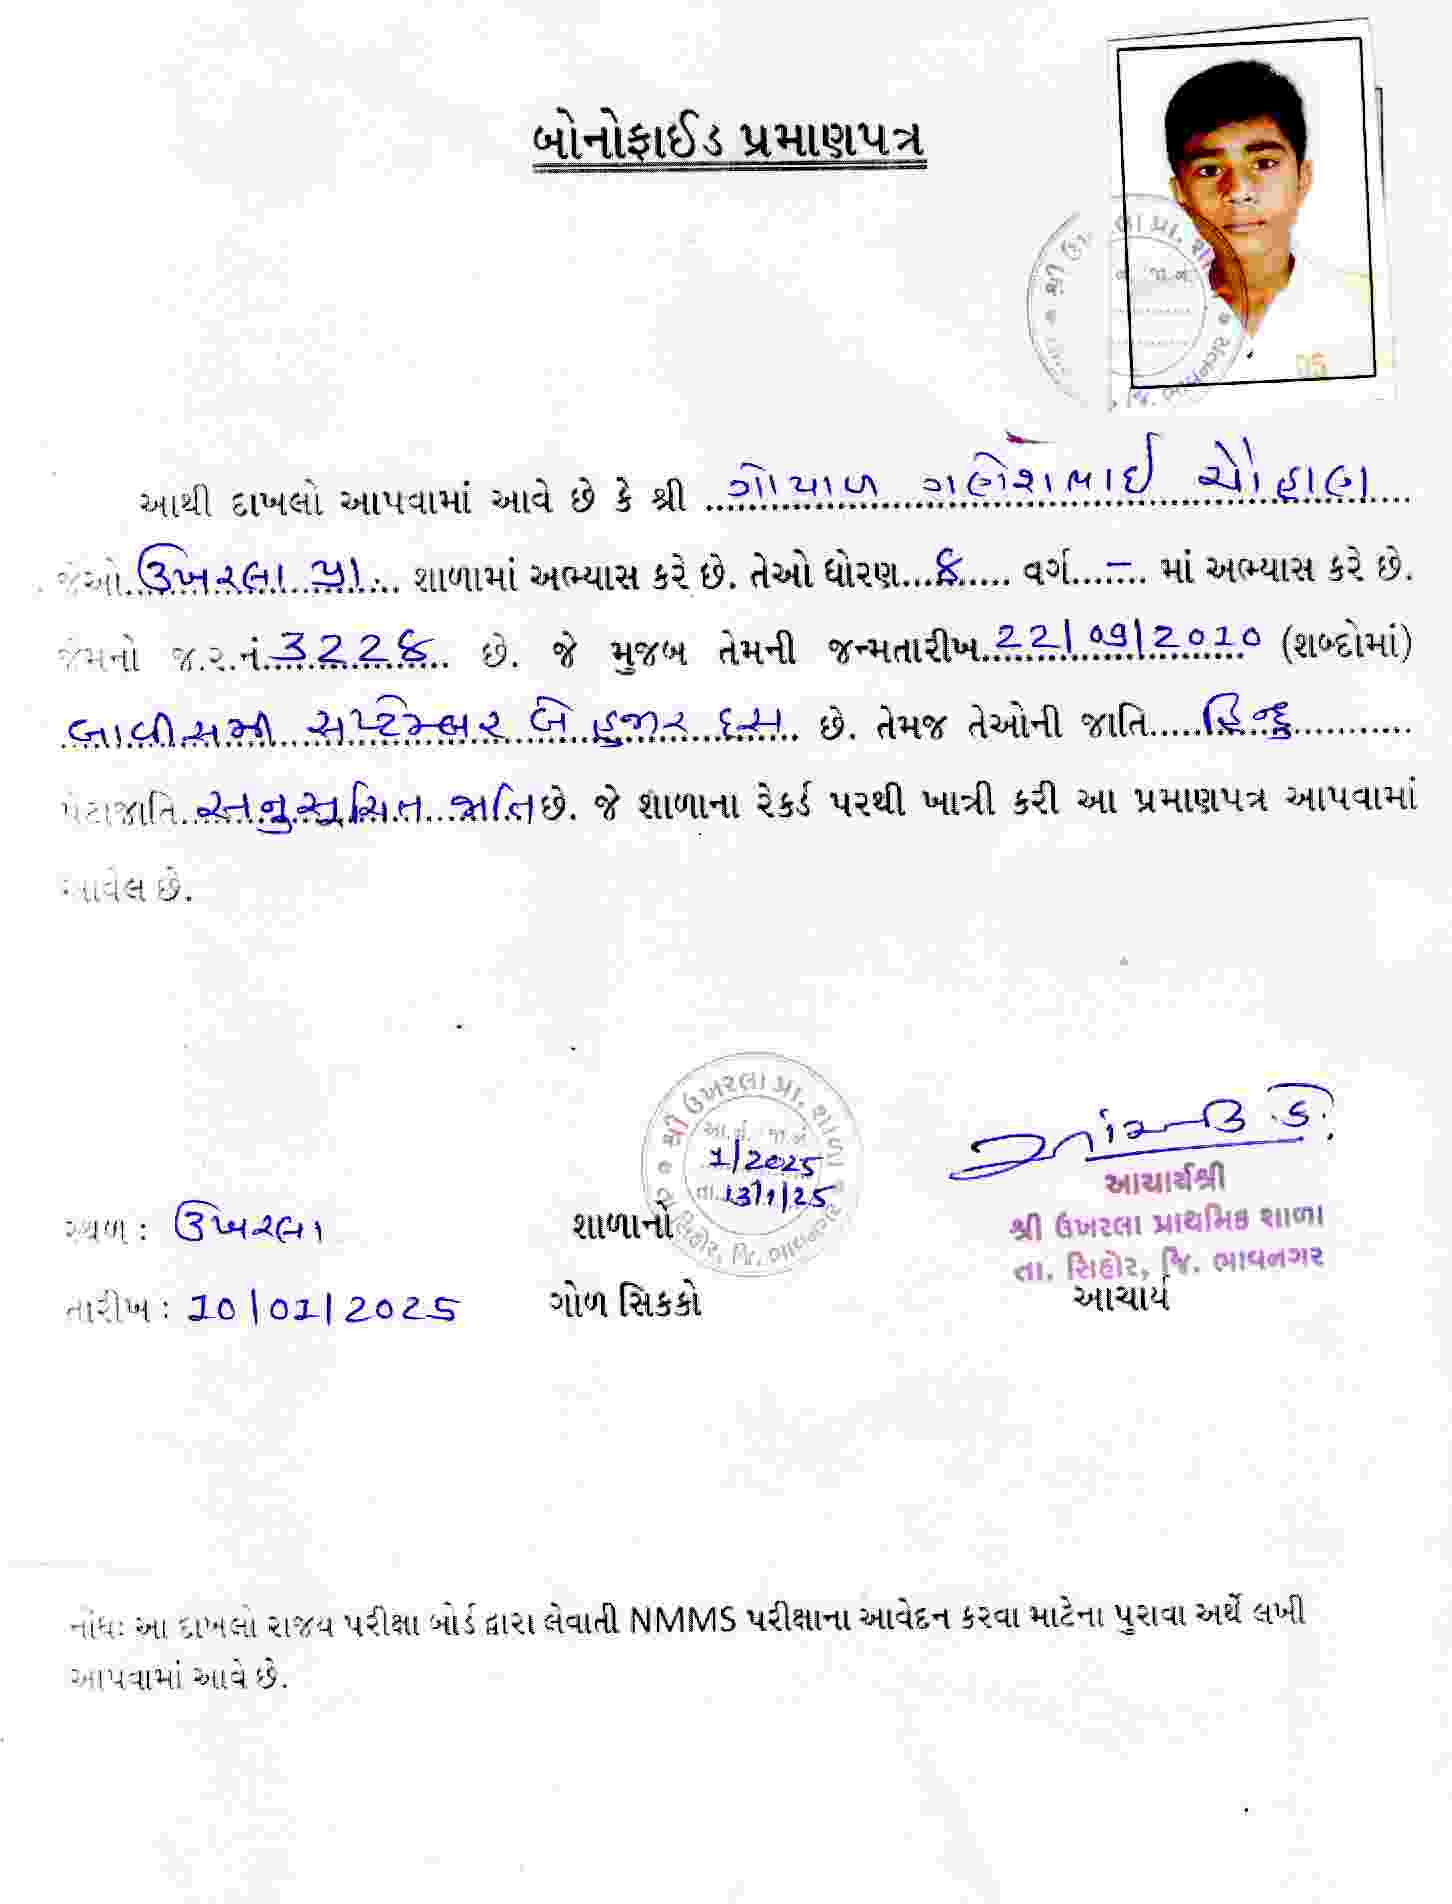 બોનોફાઈડ પ્રમાણપત્ર
આથી દાખલો આપવામાં આવે છે કે શ્રી ગોપાળ ગણેશભાઈ ચૌહાણ
જેઓ ઉખરલા પ્રા. શાળામાં અભ્યાસ કરે છે. તેઓ ધોરણ...૪..... વર્ગ...–.... માં અભ્યાસ કરે છે.
જેમનો જ.ર.નં. 322૪ છે. જે મુજબ તેમની જન્મતારીખ 22/09/2010 (શબ્દોમાં)
બાવીસમી સપ્ટેમ્બર બે હજાર દસ છે. તેમજ તેઓની જાતિ હિન્દુ
પેટાજાતિ અનુસૂચિત જાતિ છે. જે શાળાના રેકર્ડ પરથી ખાત્રી કરી આ પ્રમાણપત્ર આપવામાં
આવેલ છે.
શ્રી ઉખરલા પ્રા. શાળા
જા.નં.
1/2025
તા. 13/1/25
તા. સિહોર, જિ. ભાવનગર
આચાર્યશ્રી
શ્રી ઉખરલા પ્રાથમિક શાળા
તા. સિહોર, જિ. ભાવનગર
સ્થળ : ઉખરલા
શાળાનો
આચાર્ય
તારીખ : 10/01/2025
ગોળ સિકકો
નોંધ: આ દાખલો રાજય પરીક્ષા બોર્ડ દ્વારા લેવાતી NMMS પરીક્ષાના આવેદન કરવા માટેના પુરાવા અર્થે લખી
આપવામાં આવે છે.